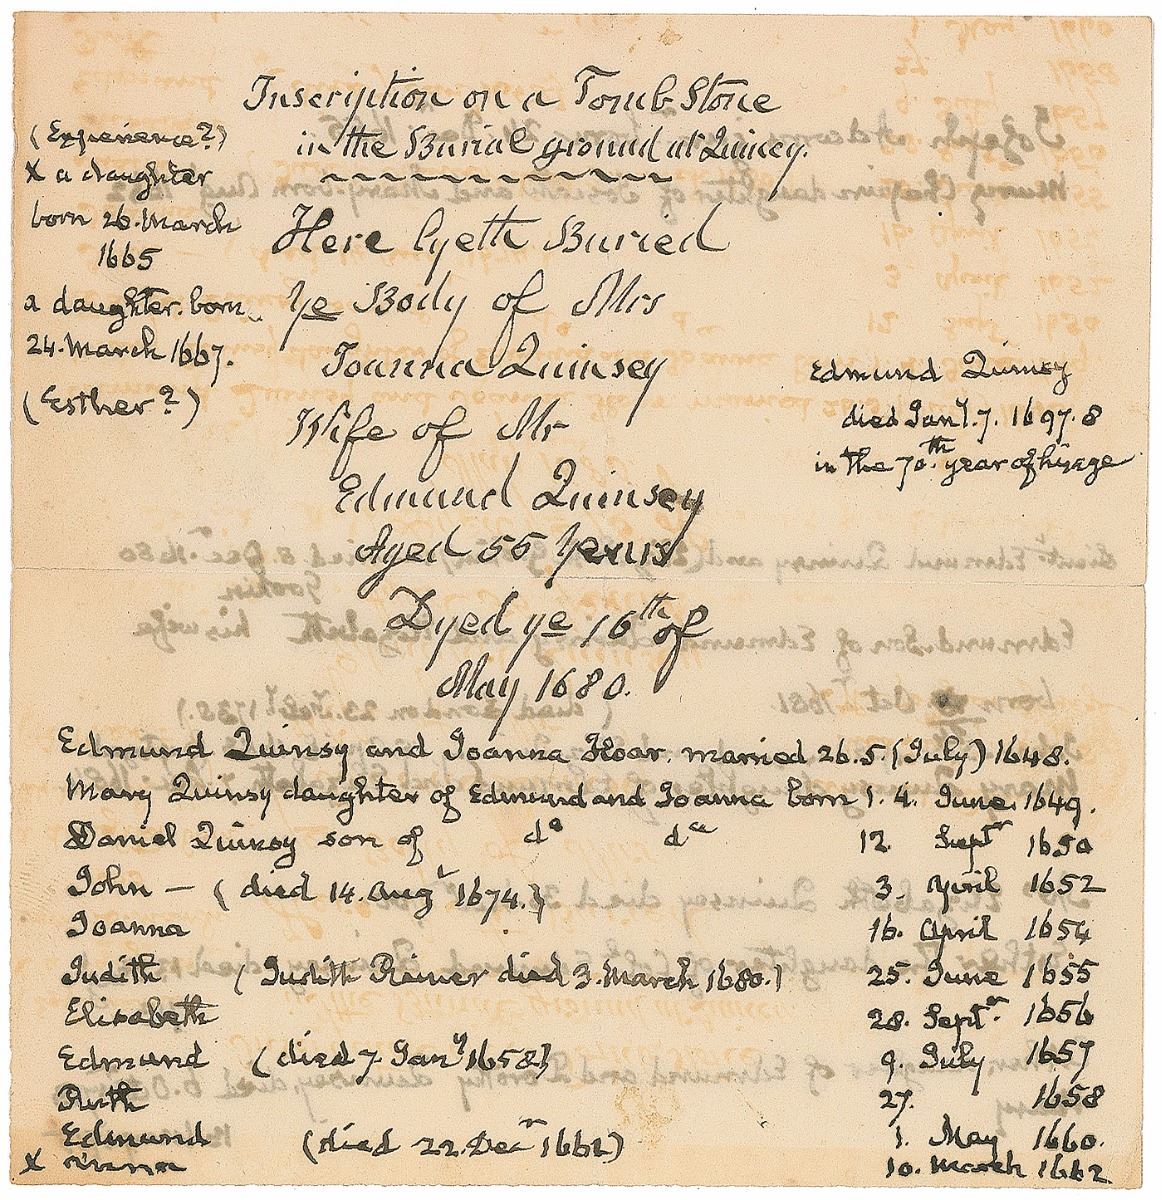 Inscription on a Tomb Stone
in the Burial ground at Quincy.
(Experience?)
x a daughter
born 26. March
1665
a daughter. born
24. March 1667.
(Esther?)
Here lyeth Buried
ye Body of Mrs
Joanna Quinsey
Wife of Mr
Edmund Quinsey
Aged 55 Years
Dyed ye 16th of
May 1680.
Edmund Quincy
died Jany. 7. 1697.8
in the 70.th year of his age
Edmund Quinsy and Joanna Hoar. married 26. 5. (July) 1648.
Mary Quinsy daughter of Edmund and Joanna born 1. 4. June. 1649.
Daniel Quinsy son of do do 12. Septr 1650
John — (died 14. Augt 1674.) 3. April 1652
Joanna 16. April 1654
Judith (Judith Rainer died 3. March 1680.) 25. June 1655
Elisabeth 28. Septr. 1656
Edmund (died 7. Jany 1658) 9. July 1657
Ruth 27. 1658
Edmund (died 22. Decr 1661) 1. May 1660.
x 10. March 1662.